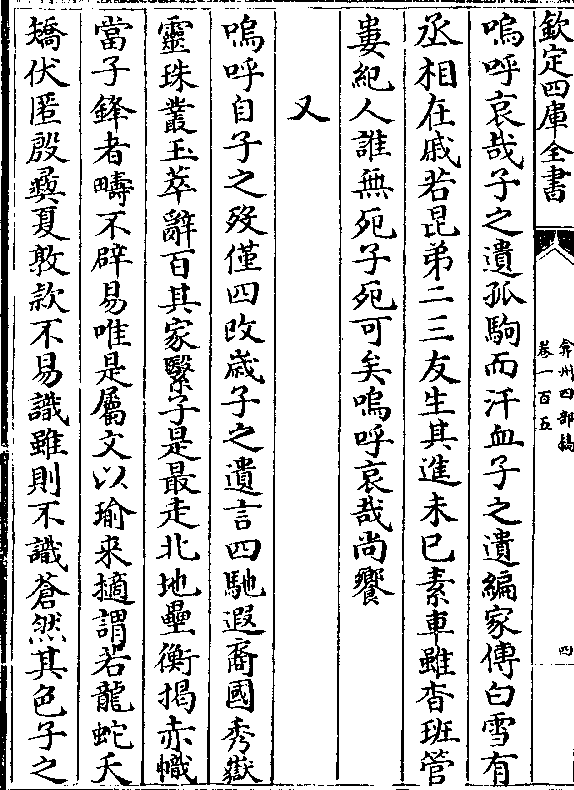 欽定四庫全書
弇州四部稿
卷一百五
四
嗚呼哀哉子之遺孤駒而汗血子之遺編家傳白雪有
丞相在戚若昆弟二三友生其進未已素車雖杳班管
婁紀人誰無死子死可矣嗚呼哀哉尚饗
又
嗚呼自子之歿僅四改歲子之遺言四馳遐裔國秀嶽
靈珠叢玉萃辭百其家繄子是最走北地壘衡揭赤幟
當子鋒者疇不辟易唯是屬文以瑜來擿謂若龍蛇夭
矯伏匿殷彞夏敦款不易識雖則不識蒼然其色子之